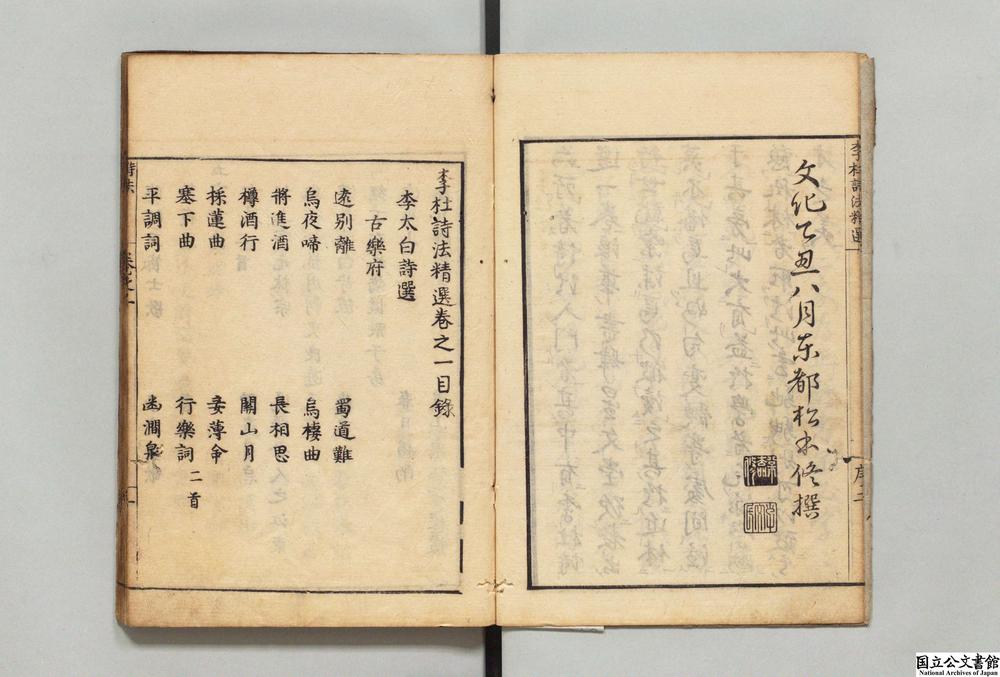 李杜詩法精選
序二
文化丁丑八月東都松本修撰
李杜詩法精選卷之一目錄
李太白詩選
古樂府
遠別離 蜀道難
烏夜啼 烏棲曲
將進酒 長相思
樽酒行 關山月
採蓮曲 妾薄命
塞下曲 行樂詞二首
平調詞 幽澗泉
卷之一
国立公文書館
National Archives of Japan